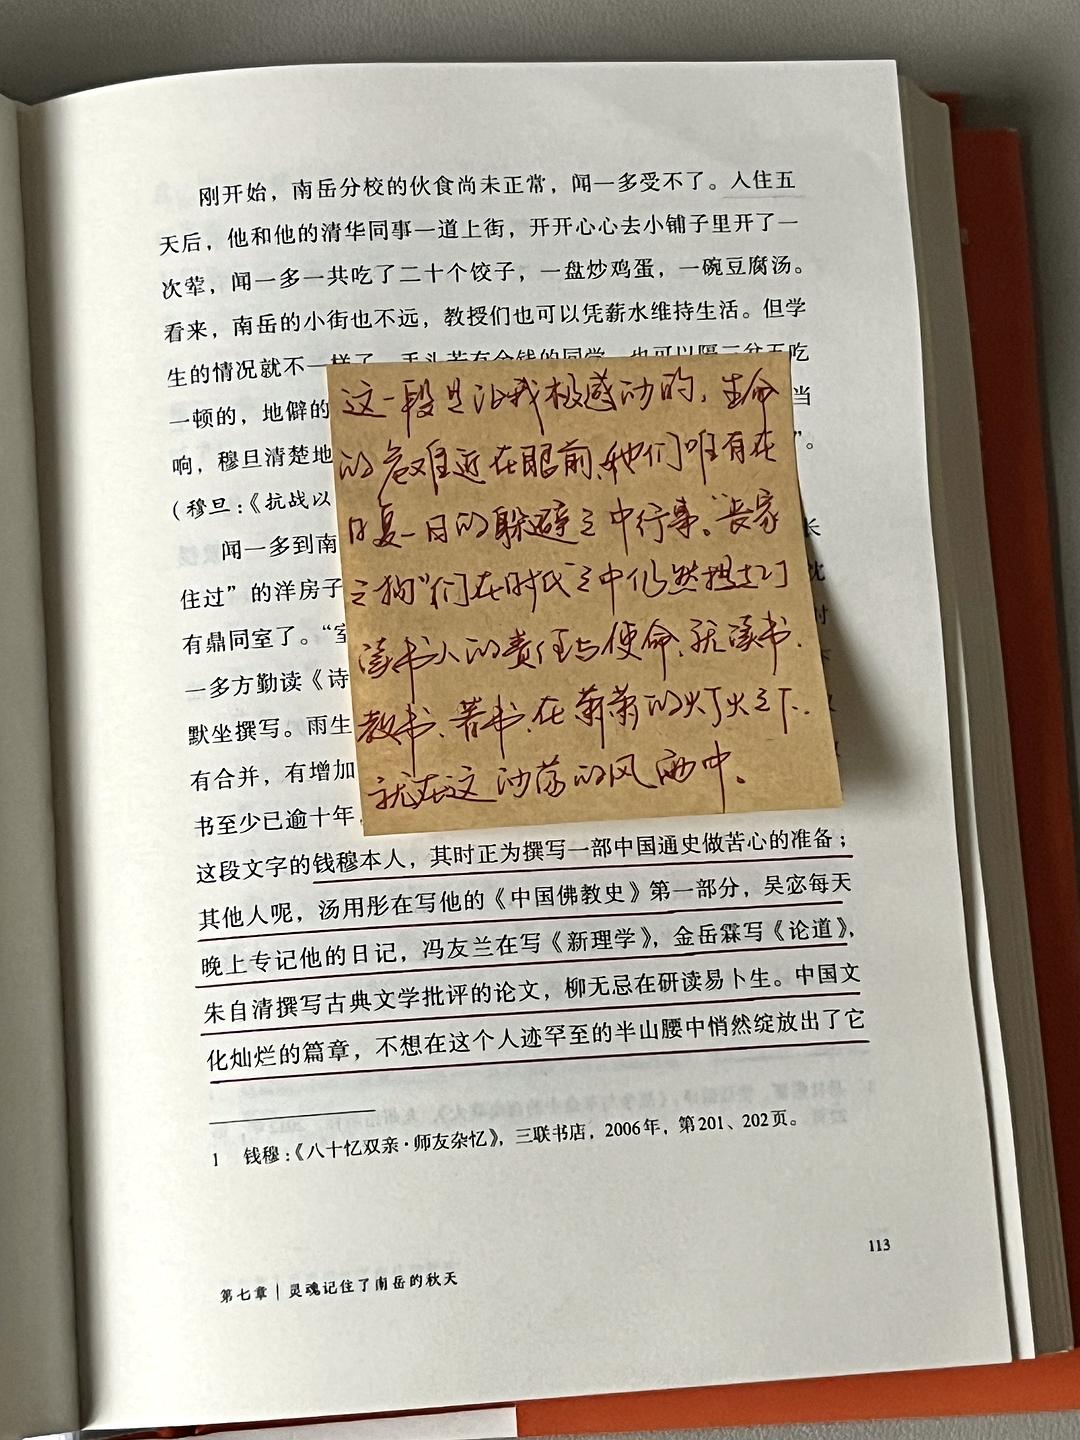 刚开始，南岳分校的伙食尚未正常，闻一多受不了。入住五
天后，他和他的清华同事一道上街，开开心心去小铺子里开了一
次荤，闻一多一共吃了二十个饺子，一盘炒鸡蛋，一碗豆腐汤。
看来，南岳的小街也不远，教授们也可以凭薪水维持生活。但学
生的情况就不一样了，手头若有余钱的同学，也可以隔三岔五吃
一顿的，地僻的
当
响，穆旦清楚地
”。
（穆旦：《抗战以
闻一多到南
长
住过”的洋房子
沈
有鼎同室了。“室
时
一多方勤读《诗
默坐撰写。雨生
有合并，有增加
书至少已逾十年，
这一段是让我极感动的，生命
的危难近在眼前，他们唯有在
日复一日的躲避之中行事。“丧家
之狗”们在时代之中仍然担起了
读书人的责任与使命，就读书、
教书、著书，在萧萧的灯火之下，
就在这 的风雨中。
这段文字的钱穆本人，其时正为撰写一部中国通史做苦心的准备；
其他人呢，汤用彤在写他的《中国佛教史》第一部分，吴宓每天
晚上专记他的日记，冯友兰在写《新理学》，金岳霖写《论道》，
朱自清撰写古典文学批评的论文，柳无忌在研读易卜生。中国文
化灿烂的篇章，不想在这个人迹罕至的半山腰中悄然绽放出了它
1 钱穆：《八十忆双亲·师友杂忆》，三联书店，2006年，第201、202页。
113
第七章｜灵魂记住了南岳的秋天